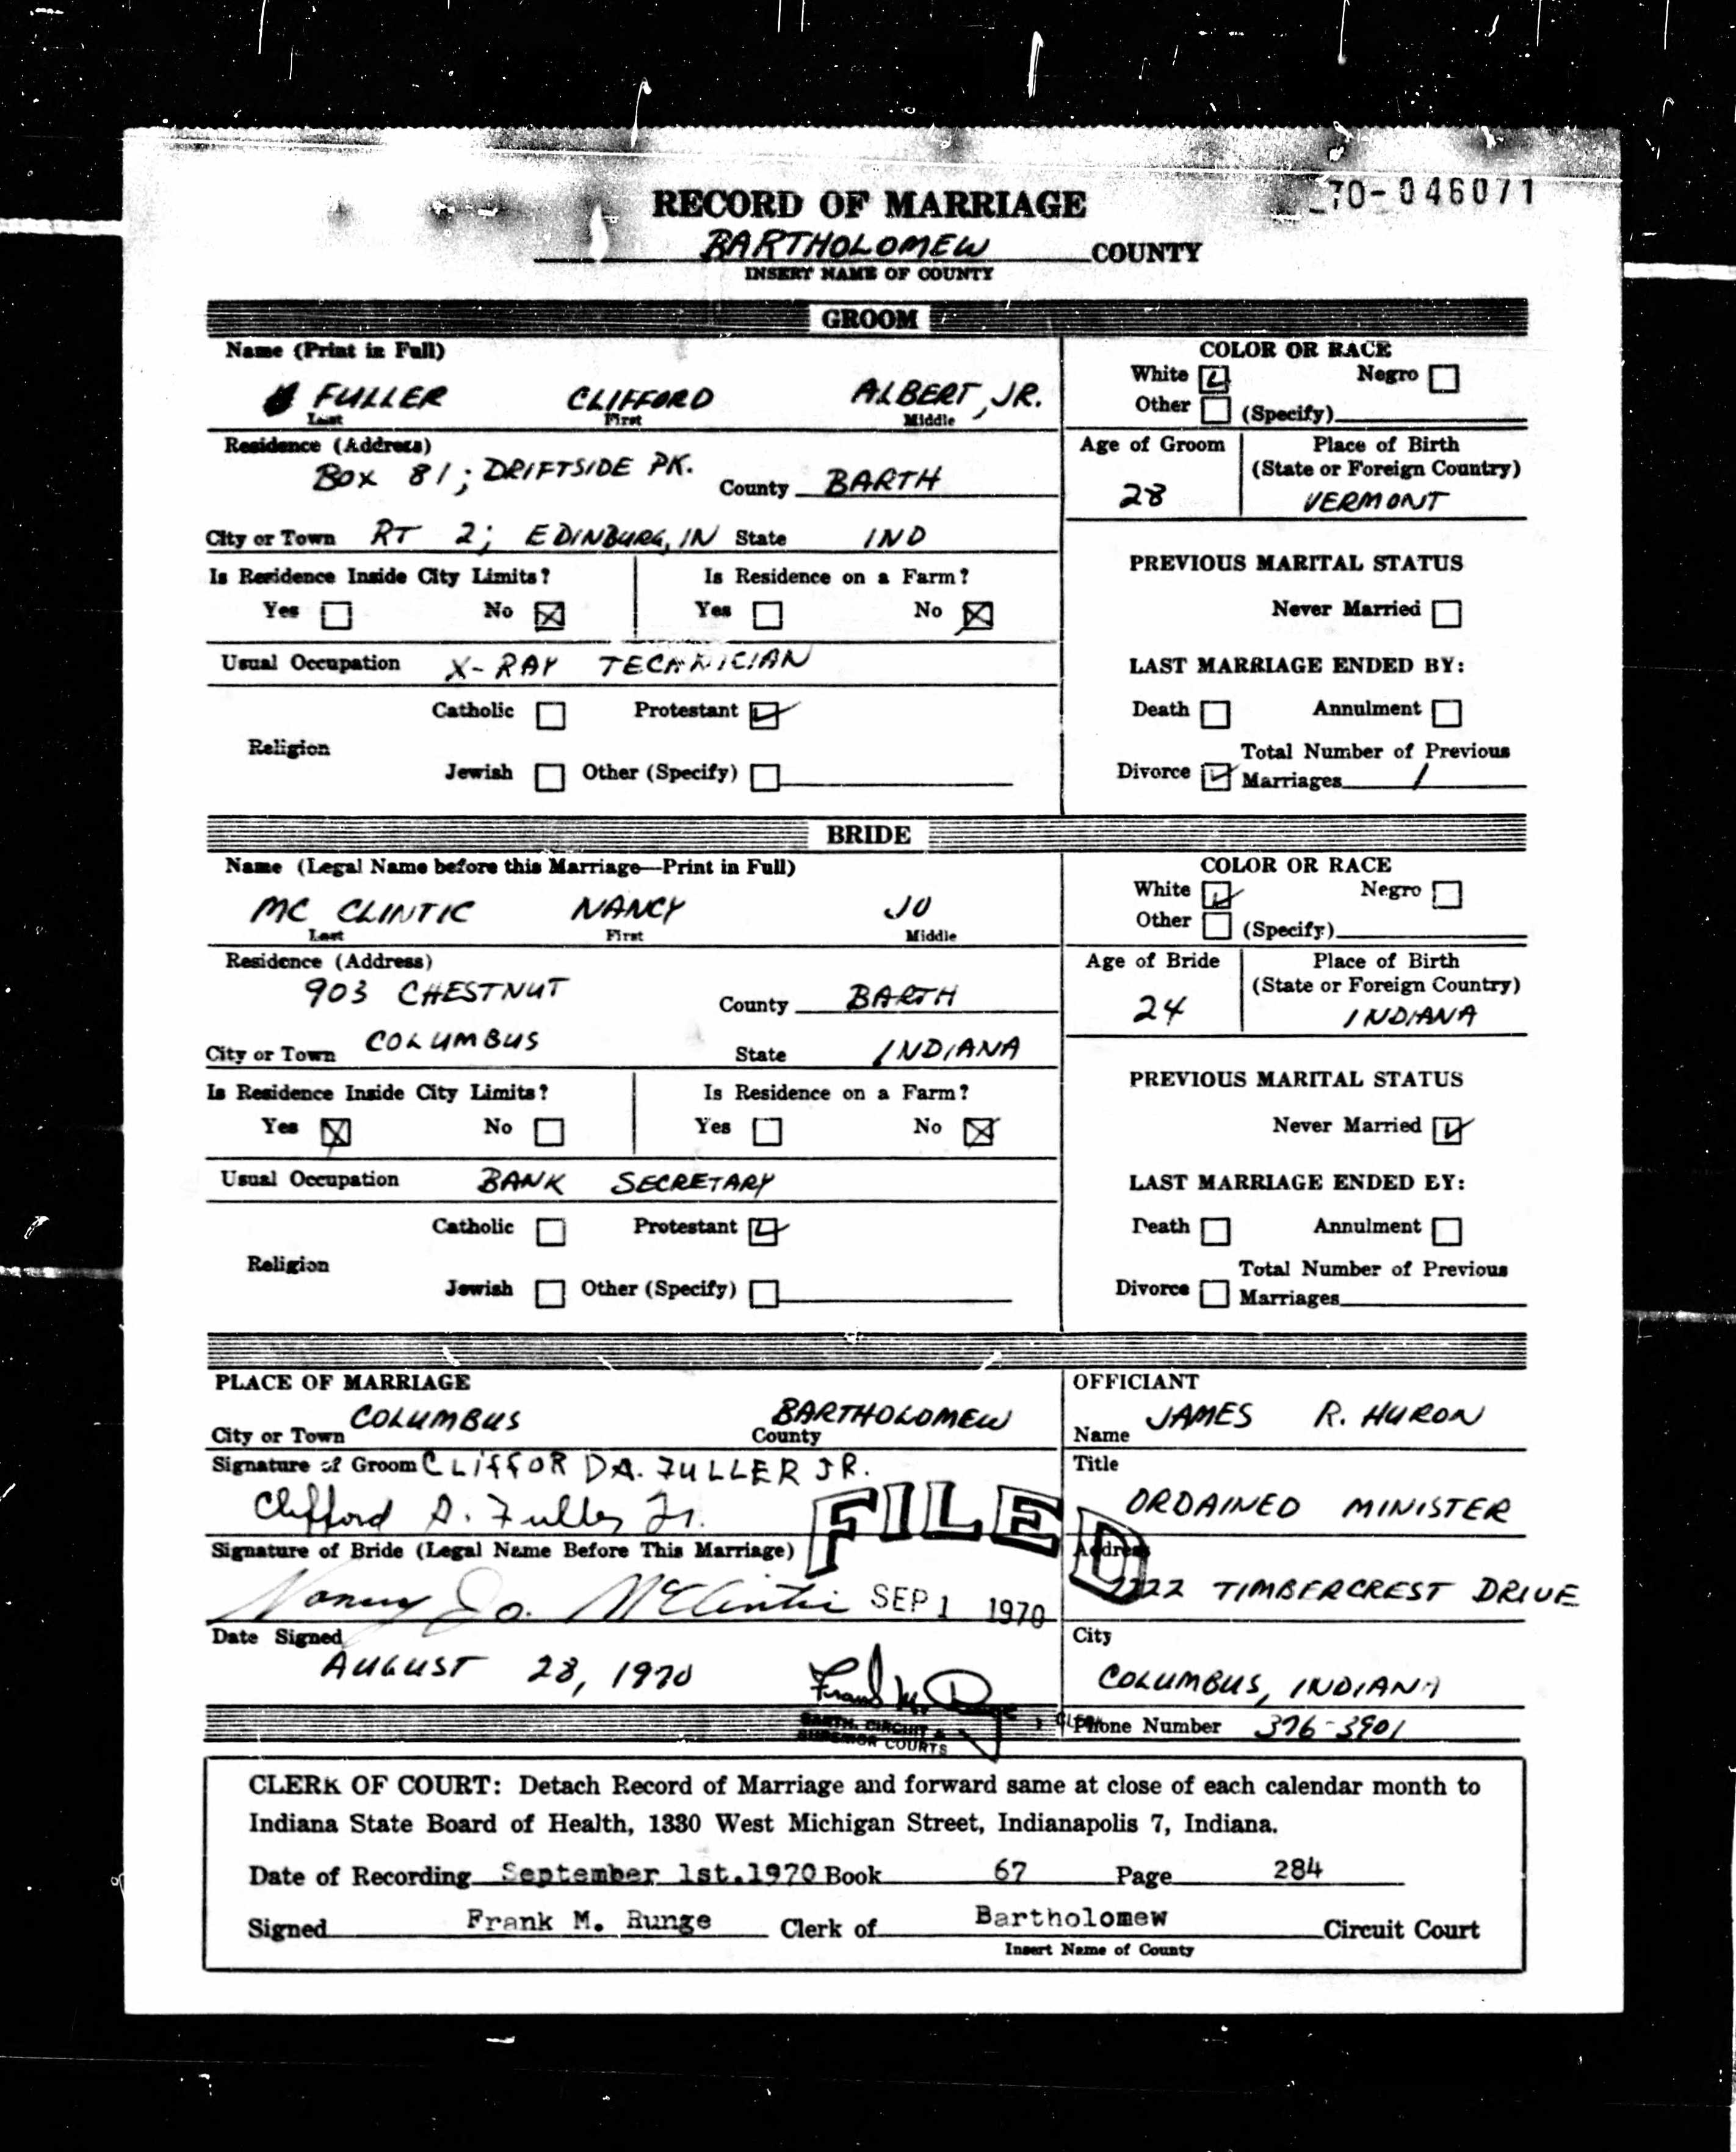 70-046071
RECORD OF MARRIAGE
BARTHOLOMEW COUNTY
INSERT NAME OF COUNTY
GROOM
Name (Print in Full)
FULLER CLIFFORD ALBERT, JR.
Last First Middle
COLOR OR RACE
White Negro
Other (Specify)
Residence (Address)
BOX 81; DRIFTSIDE PK. County BARTH
City or Town RT 2; EDINBURG, IN State IND
Age of Groom
28
Place of Birth
(State or Foreign Country)
VERMONT
Is Residence Inside City Limits? Is Residence on a Farm?
Yes No Yes No
PREVIOUS MARITAL STATUS
Never Married
Usual Occupation X-RAY TECHNICIAN
LAST MARRIAGE ENDED BY:
Catholic Protestant
Religion
Jewish Other (Specify)
Death Annulment
Total Number of Previous
Divorce Marriages 1
BRIDE
Name (Legal Name before this Marriage—Print in Full)
MC CLINTIC NANCY JO
Last First Middle
COLOR OR RACE
White Negro
Other (Specify)
Residence (Address)
903 CHESTNUT County BARTH
City or Town COLUMBUS State INDIANA
Age of Bride
24
Place of Birth
(State or Foreign Country)
INDIANA
Is Residence Inside City Limits? Is Residence on a Farm?
Yes No Yes No
PREVIOUS MARITAL STATUS
Never Married
Usual Occupation BANK SECRETARY
LAST MARRIAGE ENDED BY:
Catholic Protestant
Religion
Jewish Other (Specify)
Death Annulment
Total Number of Previous
Divorce Marriages
PLACE OF MARRIAGE
City or Town COLUMBUS BARTHOLOMEW
County
Signature of Groom CLIFFORD A. FULLER JR.
Clifford A. Fuller Jr.
Signature of Bride (Legal Name Before This Marriage)
Nancy Jo. McClintic
FILED
SEP 1 1970
Date Signed
AUGUST 28, 1970
Frank M. Runge
BARTH. CIRCUIT &
SUPERIOR COURTS
OFFICIANT
Name JAMES R. HURON
Title
ORDAINED MINISTER
Address
TIMBERCREST DRIVE
City
COLUMBUS, INDIANA
Phone Number 376-3901
CLERK OF COURT: Detach Record of Marriage and forward same at close of each calendar month to
Indiana State Board of Health, 1330 West Michigan Street, Indianapolis 7, Indiana.
Date of Recording September 1st.1970 Book 67 Page 284
Signed Frank M. Runge Clerk of Bartholomew Circuit Court
Insert Name of County